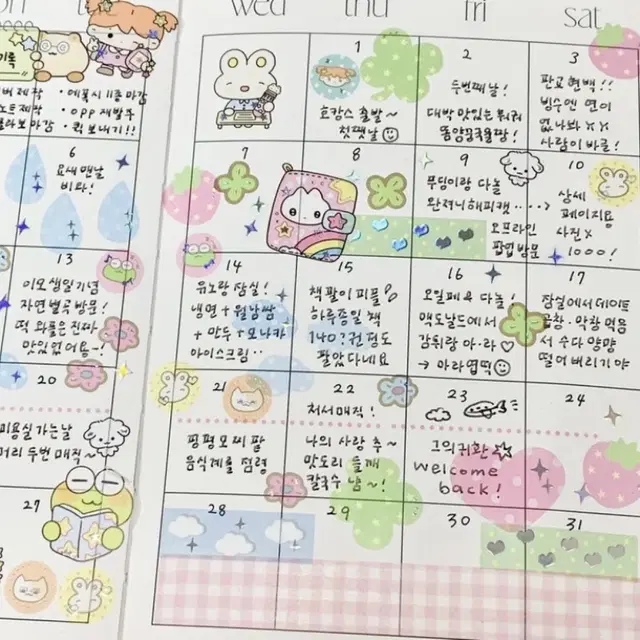 on
wed
thu
fri
sat
기록
버 제작
노트제작
라보 마감
· 에폭시 11종 마감
· opp 재발주
· 퀵 보내기!!
1
호캉스 출발~
첫쨋날
2
두번째날!
대박 맛있는
3
판교 현백!!
빙수엔 면이
없나봐 ㅠㅠ
사람이 바글!
6
요새 맨날
비와!
7
8
9
푸딩이랑 다놀
오프라인
팝업 방문
10
상세
페이지용
사진 x
1000!
13
이모 생일기념
자연별곡 방문!
떡 와플은 진짜
맛있었어용~!
14
유노랑 잠실!
냉면 + 월남쌈
+ 만두 + 모나카
아이스크림··
15
책 팔이 피플
하루종일 책
140?권 정도
팔았다네요
16
오일페 & 다놀!
맥도날드에서
감튀랑 아·라♡
→ 아라
17
잠실에서 데이트
곱창·막창 먹음
서 수다 냠냠
떨어버리기야
20
미용실 가는날
머리 두번 매직~
21
평평모찌 팝
음식계를 점령
22
처서매직!
나의 사랑 추~
맛도리 들깨
칼국수 냠~!
23
그의 귀환
welcome
back!
24
27
28
29
30
31